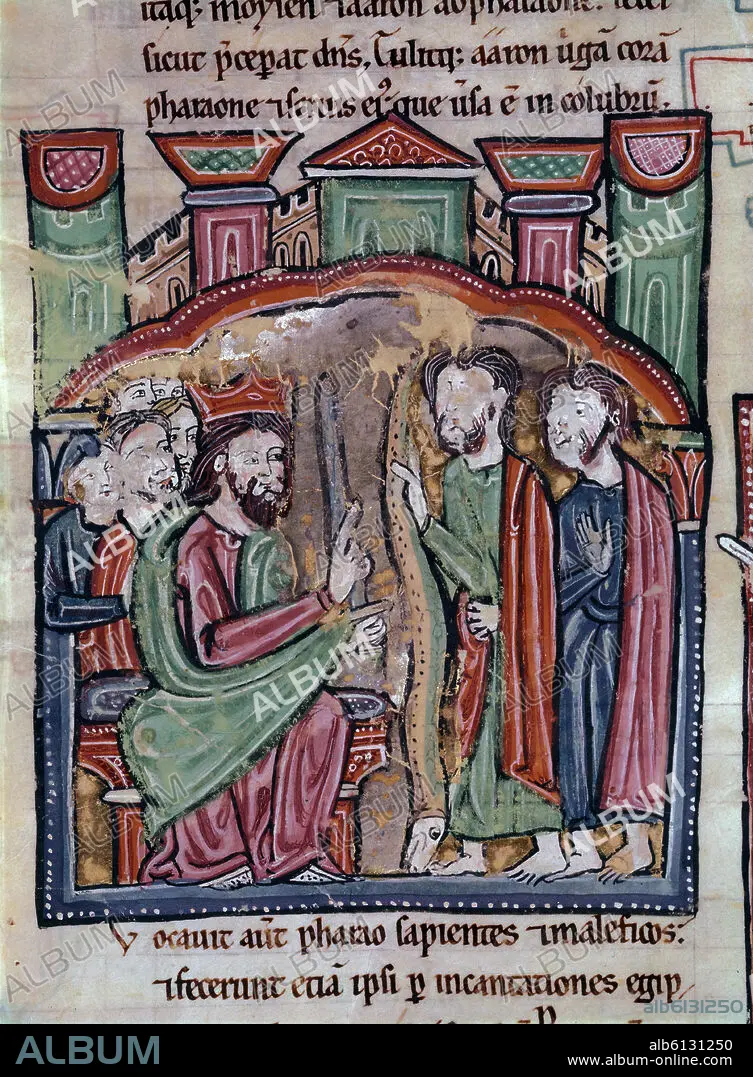 itaq; moysen ⁊ aaron ad pharaone. fecer
sicut p̄cepat dn̄s, Tulitq; aaron ūgā corā
pharaone ⁊ seruis ei'. que ūsa ē in colubrū.
ALBUM
Vocauit aūt pharao sapientes ⁊ maleficos:
⁊ fecerunt etiā ipsi p incantationes egip
alb6131250
ALBUM
alb6131250
www.album-online.com